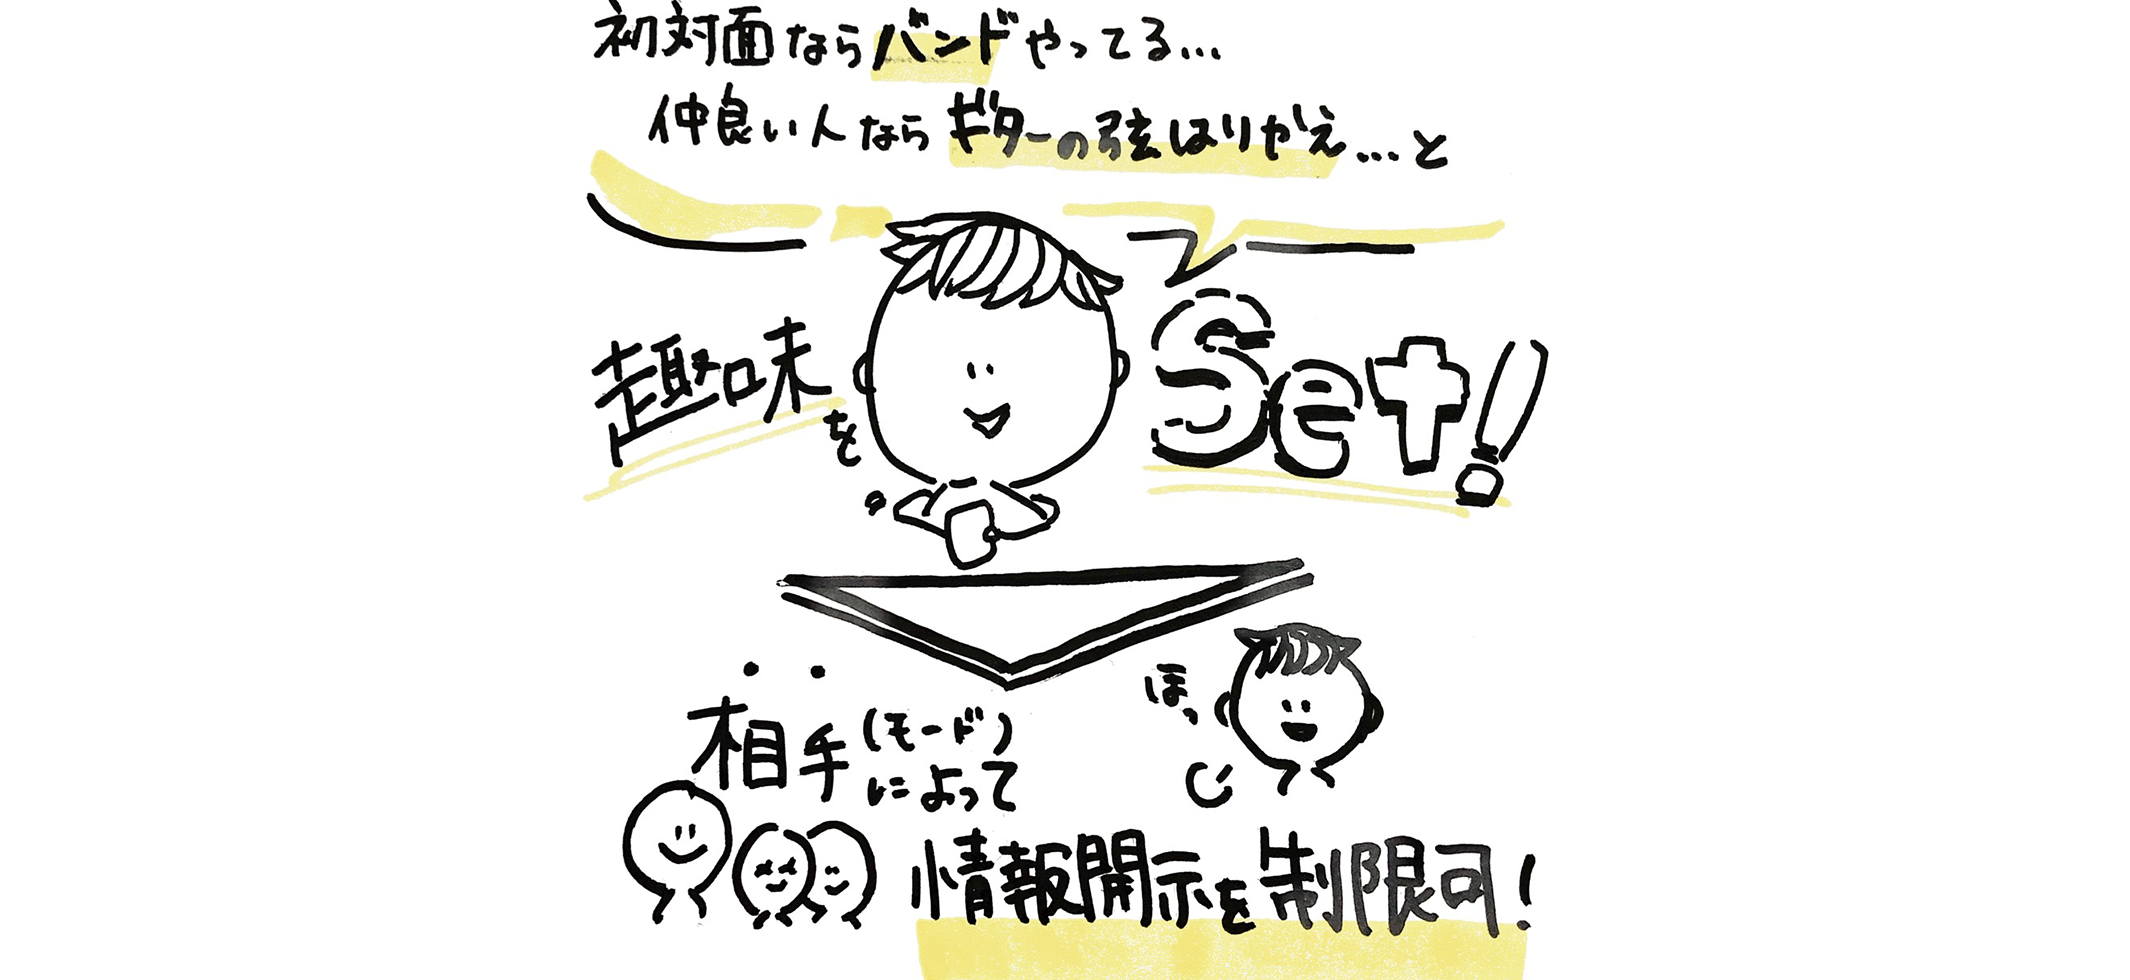 初対面ならバンドやってる…
仲良い人ならギターの弦はりかえ…と
趣味を
Set!
ほっ
相手(モード)
によって
情報開示を制限可!